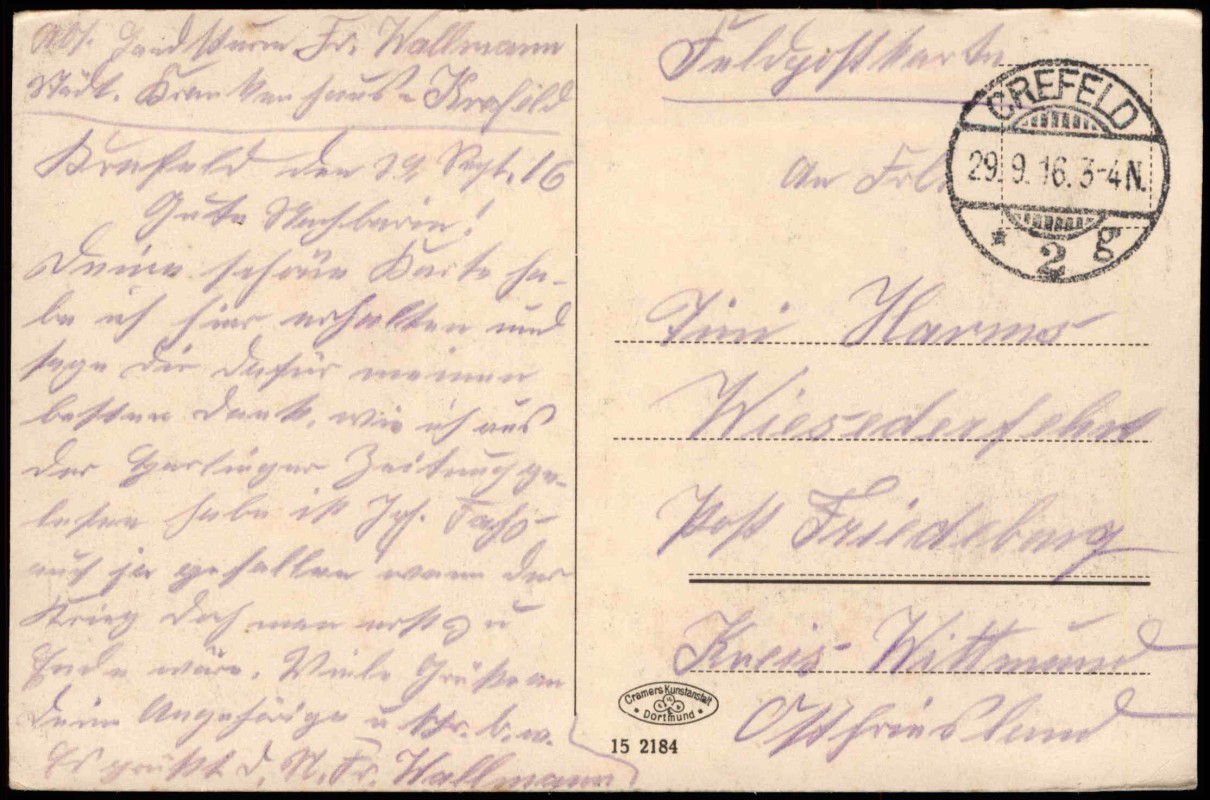 Abs. Landsturm Fr. Wallmann
Städt. Krankenhaus - Krefeld
Krefeld den 29 Sept. 16
Gute Nachbarin!
Deine schöne Karte ha-
be ich hier erhalten und
sage dir dafür meinen
besten Dank, wie ich aus
der Harlinger Zeitung ge-
lesen habe ist Joh.
auch ja gefallen wenn der
Krieg doch man erst zu
Ende wäre. Viele Grüße an
deine Angehörige u schr. b. w.
Es grüßt d. N. Fr. Wallmann
Feldpostkarte
An Frl.
CREFELD
29.9.16.3-4N.
* 2 g
Tini Harms
Wiesederfehn
Post Friedeburg
Kreis Wittmund
Ostfriesland
Cramers Kunstanstalt
* Dortmund *
15 2184